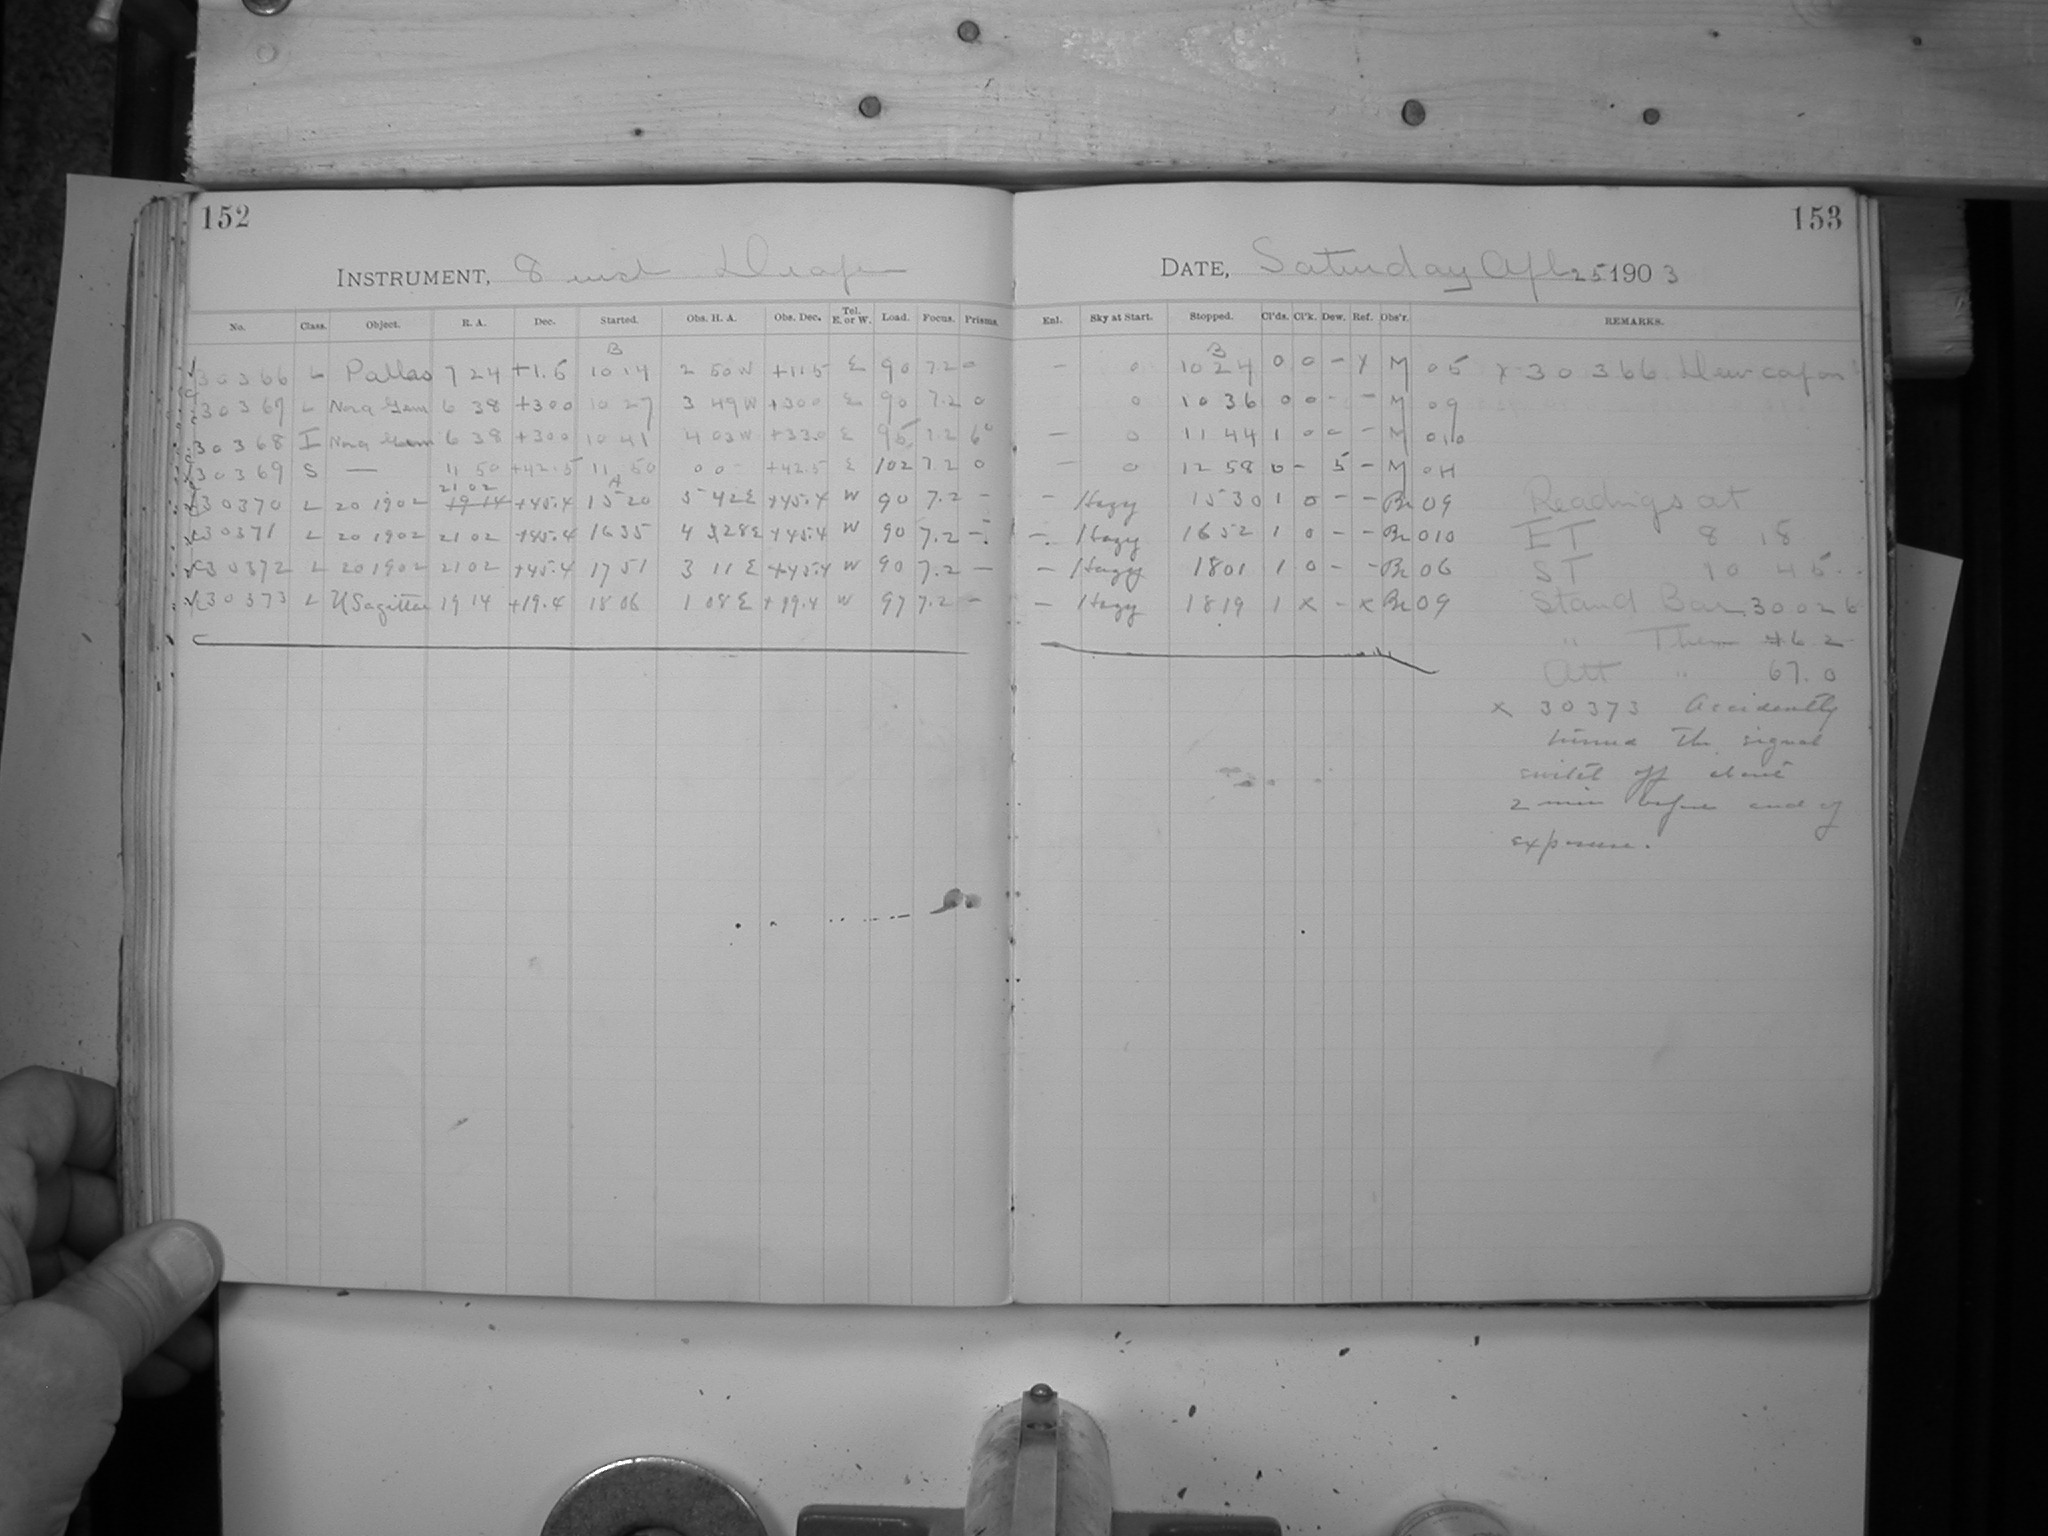 152
153
INSTRUMENT, 8 inch Draper
DATE, Saturday Apl 25 1903
No. Class. Object. R. A. Dec. Started. Obs. H. A. Obs. Dec. Tel. E. or W. Load. Focus. Prisms. Enl. Sky at Start. Stopped. Cl'ds. Cl'k. Dew. Ref. Obs'r. REMARKS.
B B
30366 L Pallas 7 24 10 14 2 50 W +11.5 E 90 7.2 0 - 0 10 24 0 0 - x M 05 x 30366 Dew cap on
30367 L Nova Gem 6 38 +30.0 10 27 3 49 W +30.0 E 90 7.2 0 0 10 36 0 0 - - M 09
30368 I Nova Gem 6 38 +30.0 10 41 4 03 W +33.0 E 95 7.2 6° - 0 11 44 1 0 0 - M 010
30369 S — 11 50 +42.5 11 50 0 0 +42.5 E 102 7.2 0 - 0 12 58 0 - 5 - M 0H
21 02 A
30370 L 20 1902 19 14 +45.4 15 20 5 42 E +45.4 W 90 7.2 - - Hazy 15 30 1 0 - - Br 09 Readings at
30371 L 20 1902 21 02 +45.4 16 35 4 28 E +45.4 W 90 7.2 - - Hazy 16 52 1 0 - - Br 010 ET 8 18
30372 L 20 1902 21 02 +45.4 17 51 3 11 E +45.4 W 90 7.2 - - Hazy 18 01 1 0 - - Br 06 ST 10 45
30373 L U Sagittae 19 14 +19.4 18 06 1 08 E +19.4 W 97 7.2 - - Hazy 18 19 1 x - x Br 09 Stand Bar 30026
" Ther 46 2
Att " 67.0
x 30373 Accidently
turned the signal
switch off about
2 min before end of
exposure.